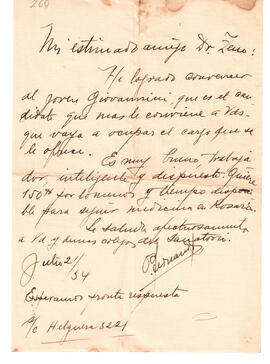 260
Mi estimado amigo Dr. Zeno:
He logrado convencer
al joven Giovannini, que es el can
didato que mas le conviene a Vds
que vaya a ocupar el cargo que se
le ofrece. Es muy buen trabaja
dor inteligente y dispuesto. Quiere
150 por lo menos y tiempo dispo
ble para seguir medicina en Rosario.
Le saluda afectuosamente
a Vd y demas colegas del Sanatorio.
Julio 2/
34
Esperamos pronta respuesta
S/C Helguera 3221